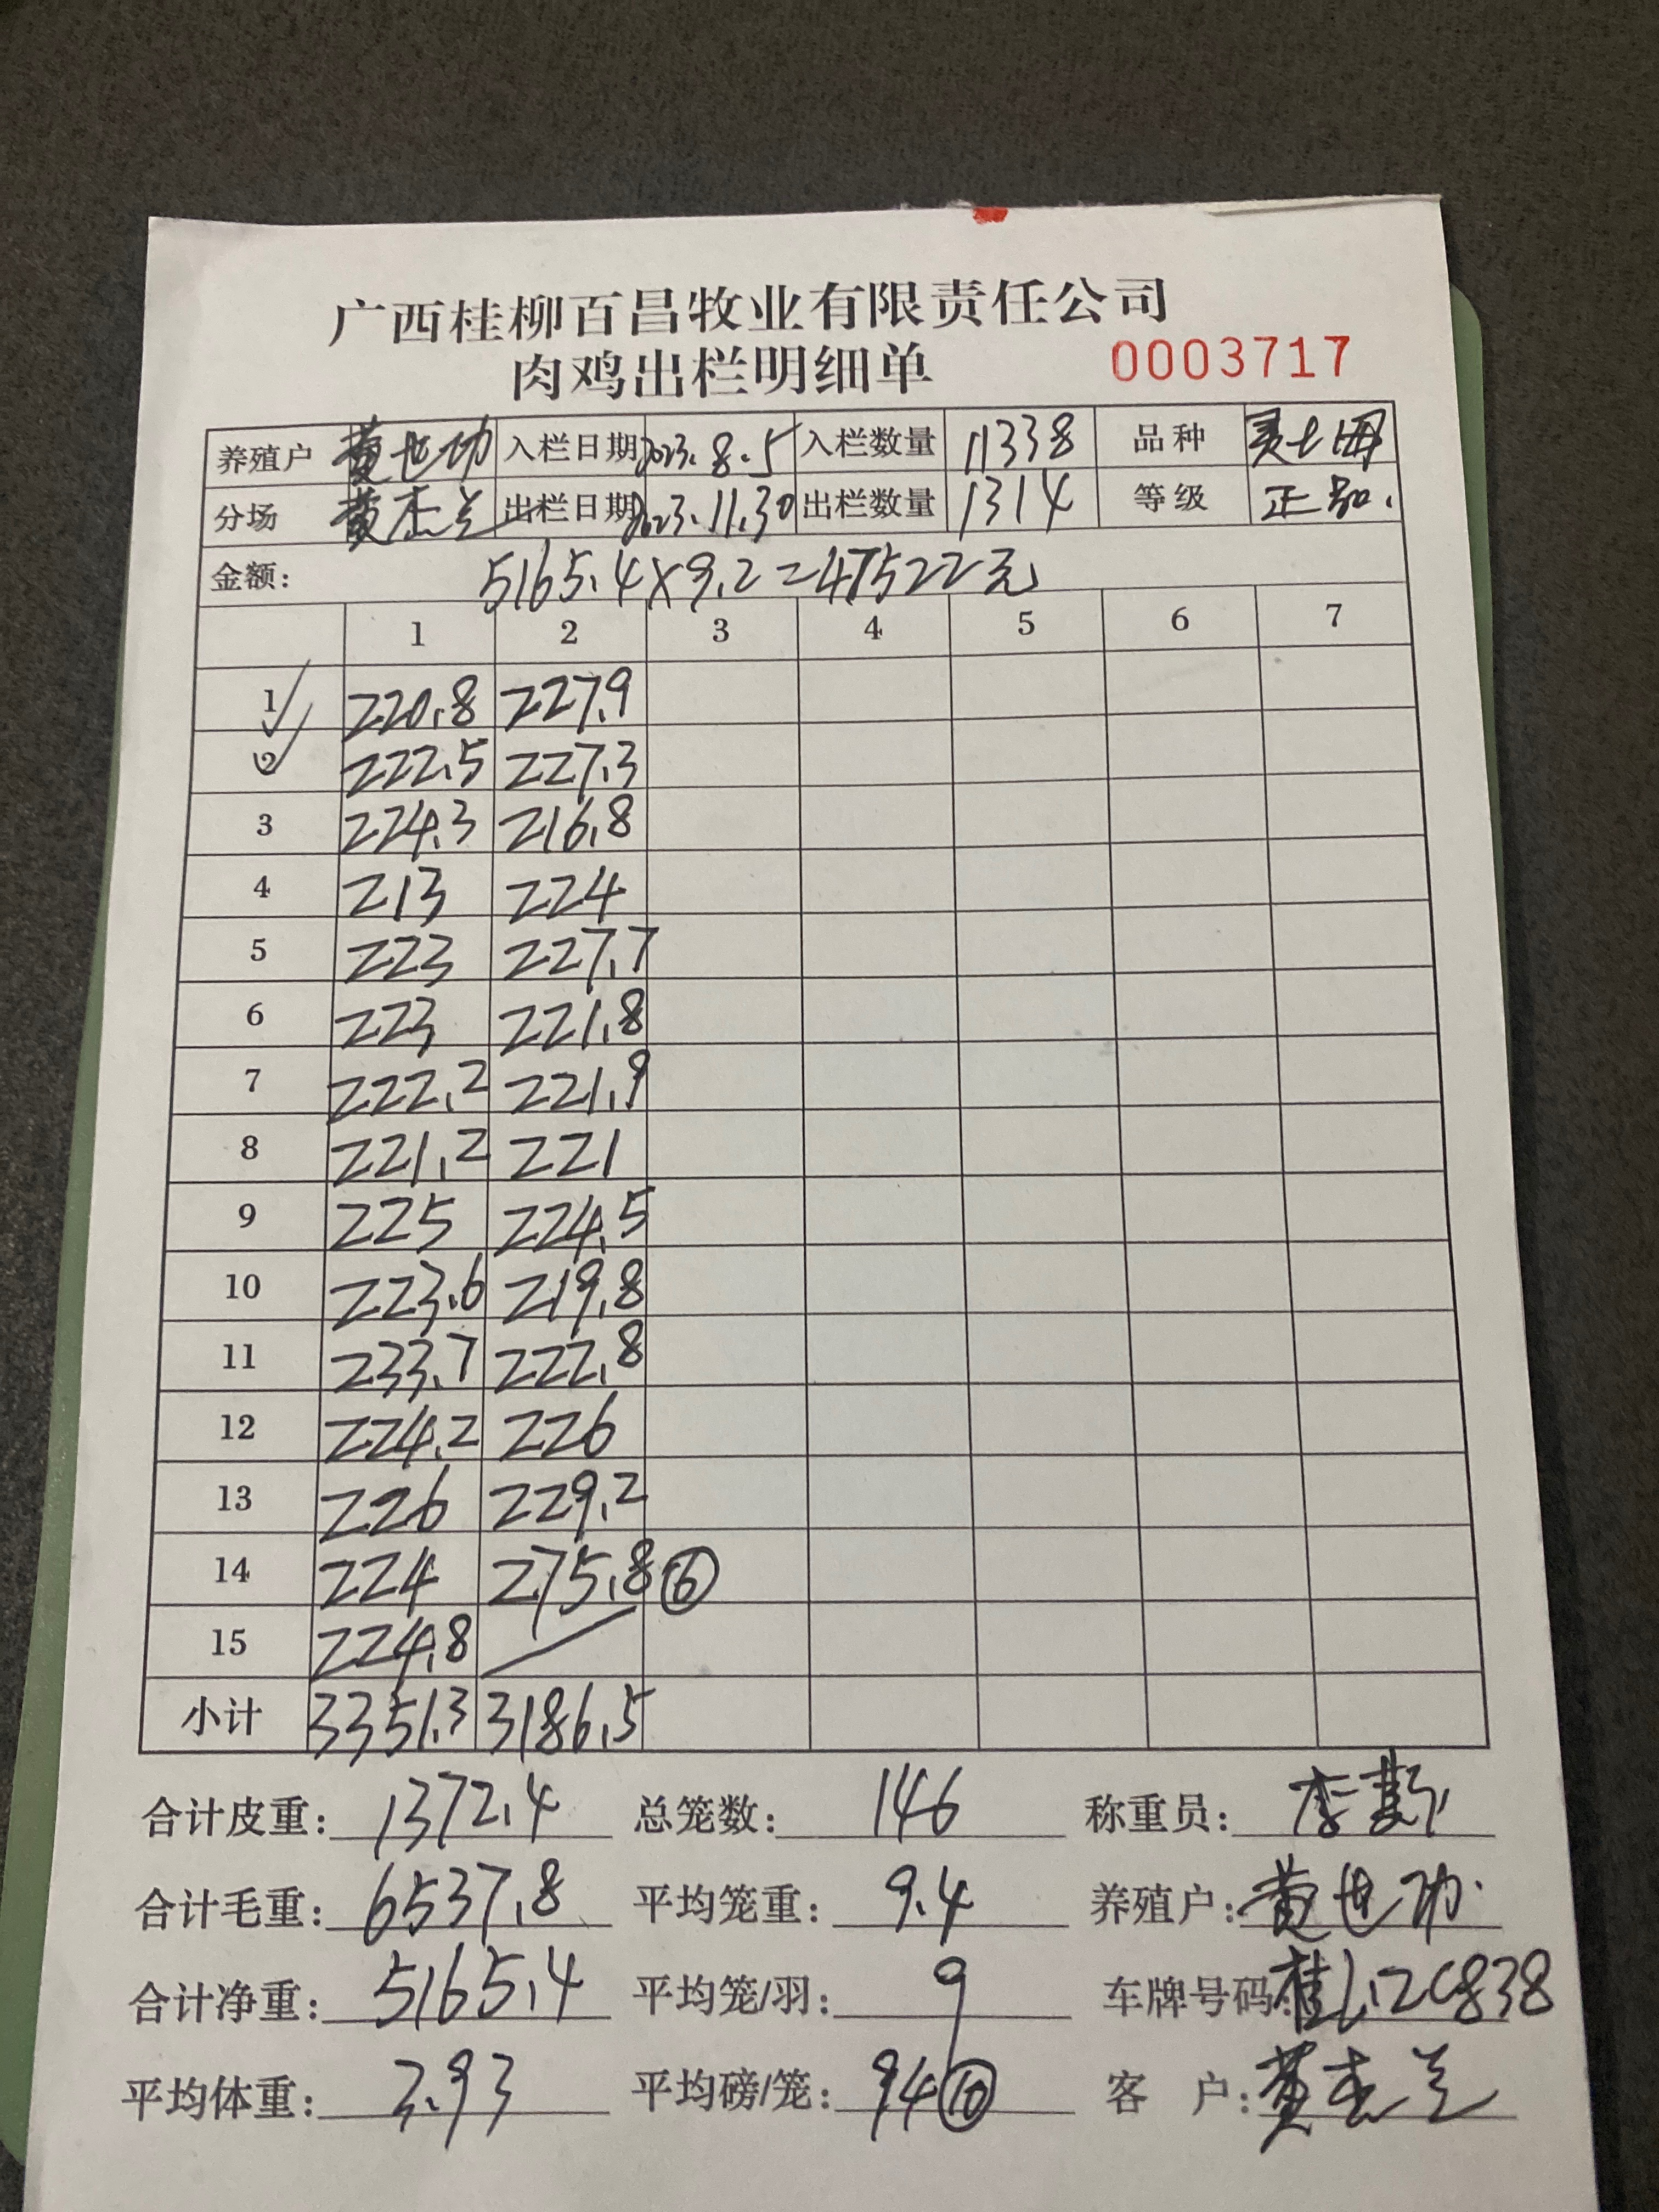 广西桂柳百昌牧业有限责任公司
肉鸡出栏明细单 0003717
养殖户 黄世功 入栏日期 2023.8.5 入栏数量 11338 品种
分场 黄杰兰 出栏日期 2023.11.30 出栏数量 1314 等级 正品.
金额: 5165.4×9.2=47522元
1 2 3 4 5 6 7
1 220.8 227.9
2 222.5 227.3
3 224.3 216.8
4 213 224
5 223 227.7
6 223 221.8
7 222.2 221.9
8 221.2 221
9 225 224.5
10 223.6 219.8
11 233.7 222.8
12 224.2 226
13 226 229.2
14 224 275.8 ⑥
15 224.8
小计 3351.3 3186.5
合计皮重: 1372.4 总笼数: 146 称重员: 李
合计毛重: 6537.8 平均笼重: 9.4 养殖户: 黄世功
合计净重: 5165.4 平均笼/羽: 9 车牌号码: 桂L2C838
平均体重: 3.93 平均磅/笼: 94 ⑩ 客 户: 黄杰兰